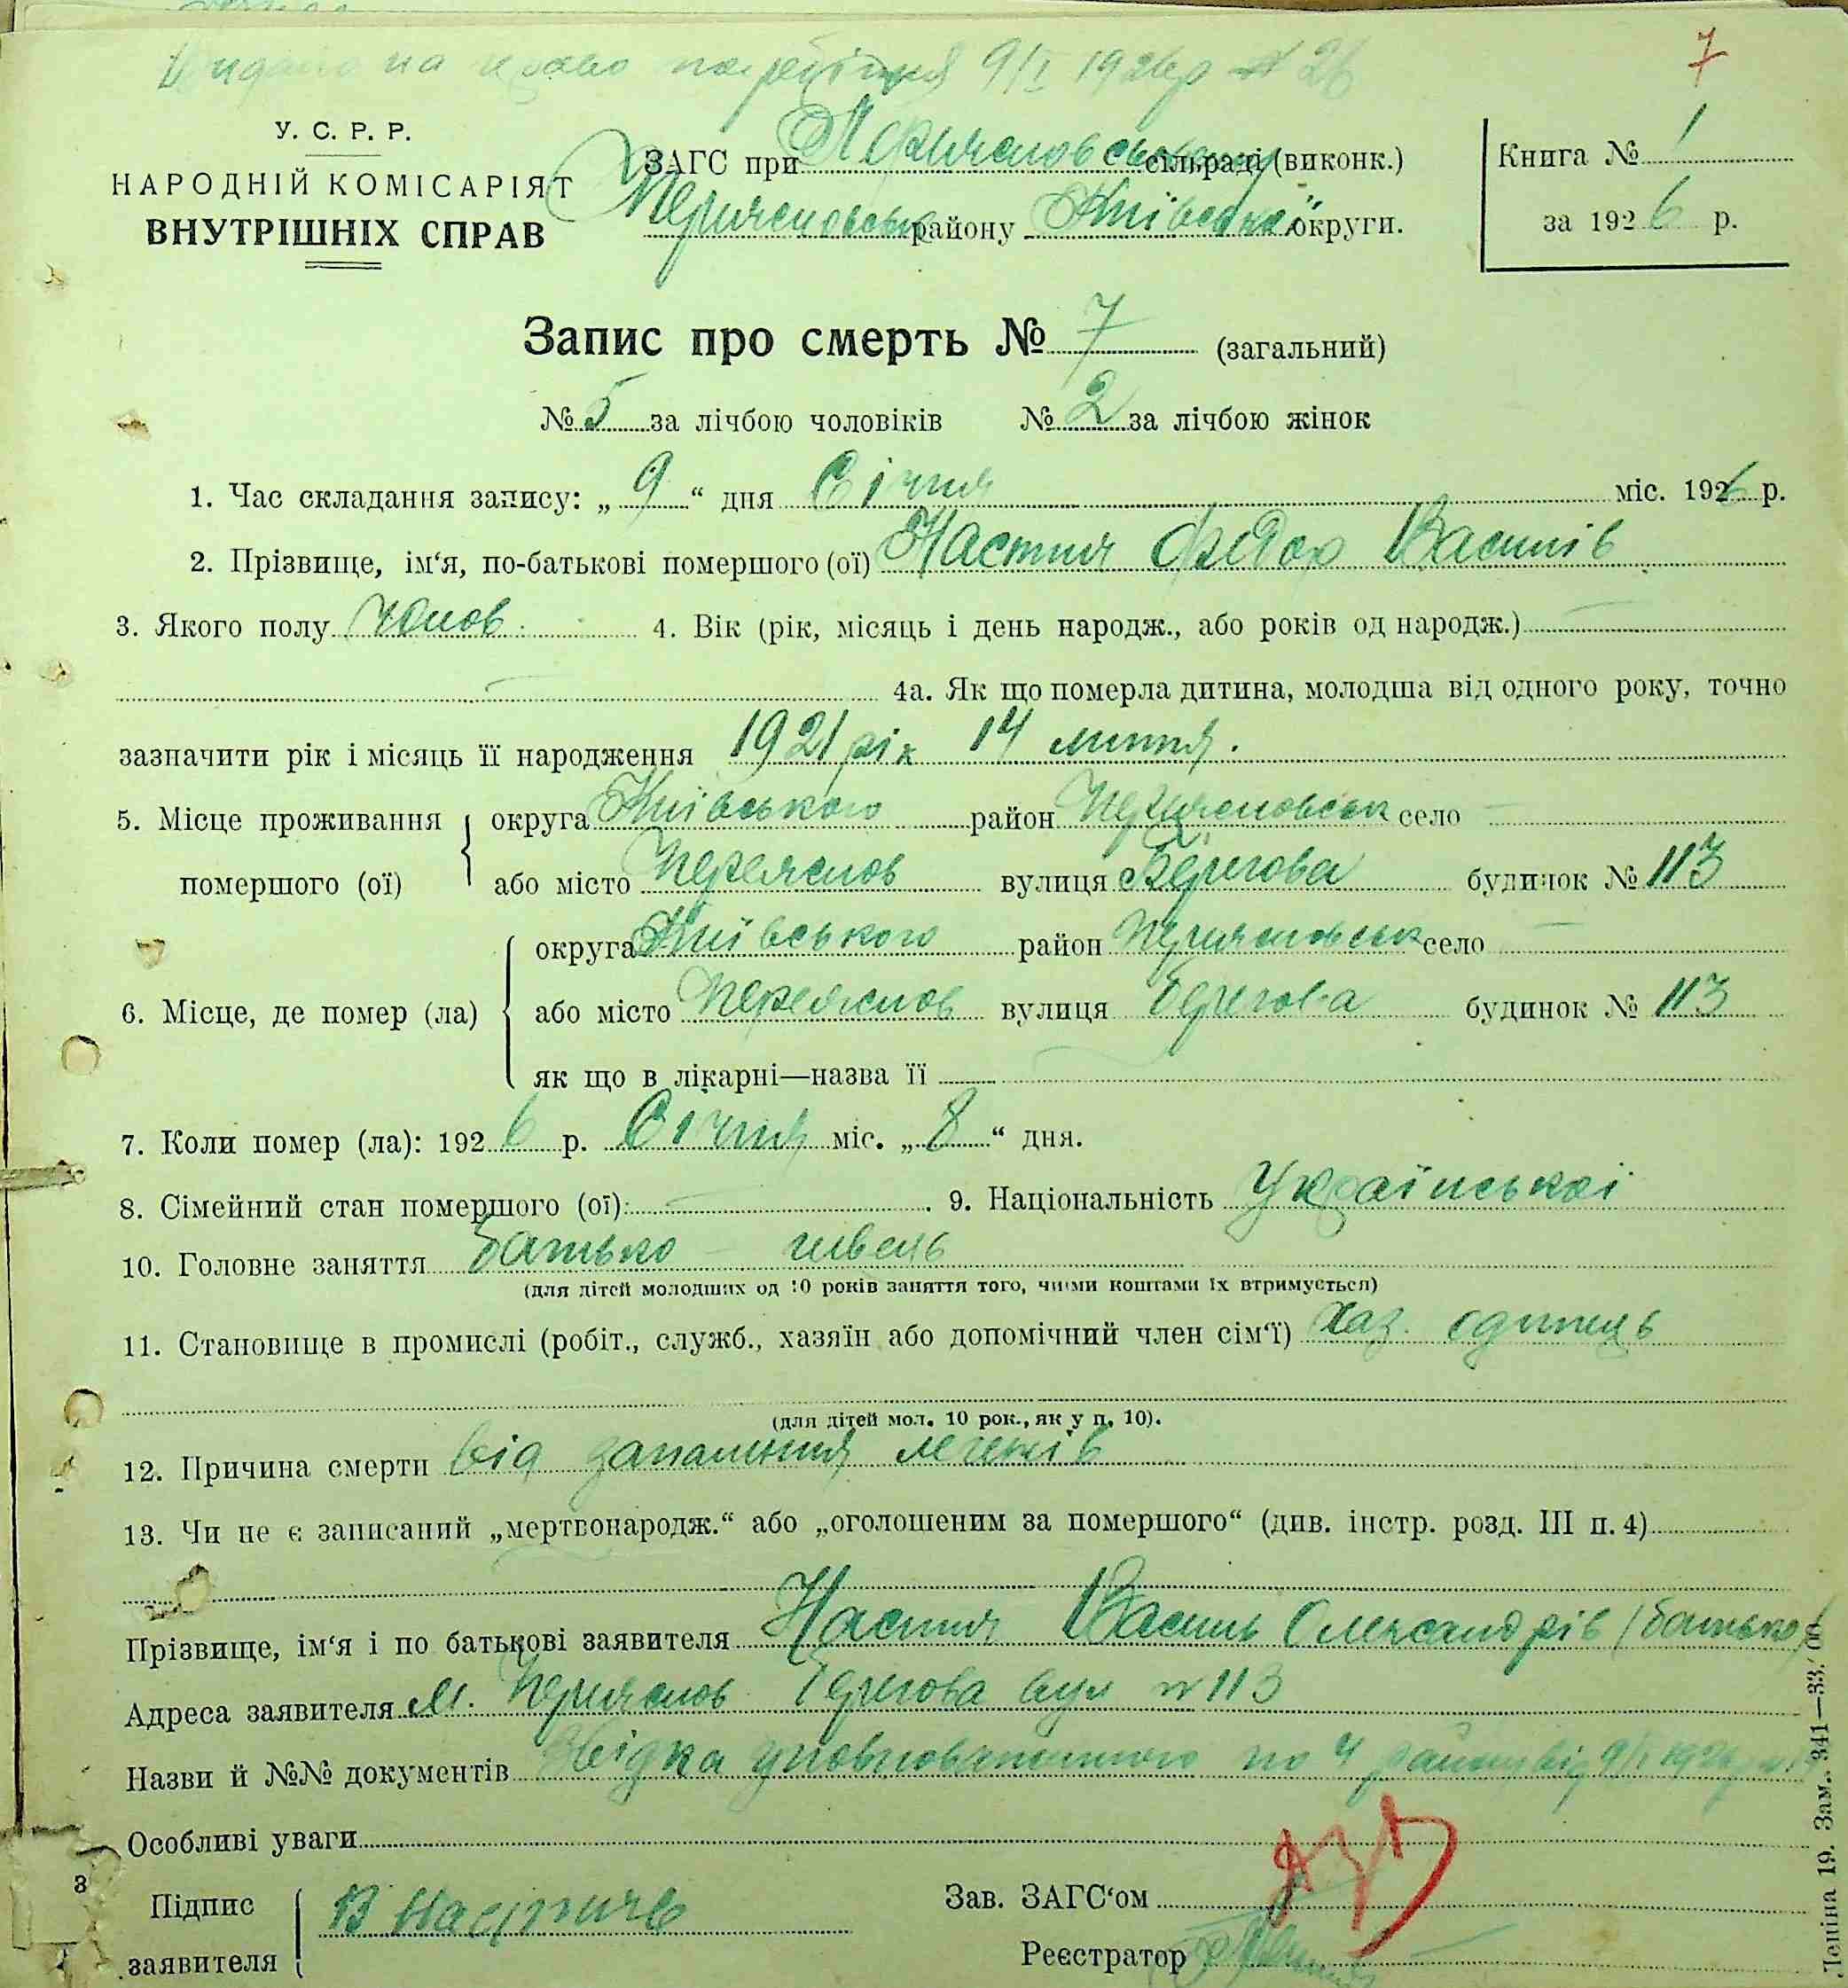 Видано на право похорення 9/I 1926р № 26
7
У. С. Р. Р.
НАРОДНІЙ КОМІСАРІЯТ
ВНУТРІШНІХ СПРАВ
ЗАГС при Переясловській сільраді (виконк.)
Переясловськ району Київської округи.
Книга № 1
за 1926 р.
Запис про смерть № 7 (загальний)
№ 5 за лічбою чоловіків № 2 за лічбою жінок
1. Час складання запису: „ 9 “ дня Січня міс. 1926 р.
2. Прізвище, ім‘я, по-батькові помершого (ої) Настич Федор Василів
3. Якого полу чолов. 4. Вік (рік, місяць і день народж., або років од народж.)
4а. Як що померла дитина, молодша від одного року, точно
зазначити рік і місяць її народження 1921 рік 14 липня.
5. Місце проживання помершого (ої) округа Київського район Переясловськ село —
або місто Переяслов вулиця Берегова будинок № 113
6. Місце, де помер (ла) округа Київського район Переясловськ село —
або місто Переяслов вулиця Берегова будинок № 113
як що в лікарні—назва її
7. Коли помер (ла): 1926 р. Січня міс. „ 8 “ дня.
8. Сімейний стан помершого (ої): — . 9. Національність Української
10. Головне заняття Батько — швець
(для дітей молодших од 10 років заняття того, чиїми коштами їх втримується)
11. Становище в промислі (робіт., служб., хазяїн або допомічний член сім‘ї) Хаз. єдинець
(для дітей мол. 10 рок., як у п. 10).
12. Причина смерти від запалення легенів
13. Чи не є записаний „мертвонародж.“ або „оголошеним за помершого“ (див. інстр. розд. III п. 4)
Прізвище, ім‘я і по батькові заявителя Настич Василь Олександрів (батько)
Адреса заявителя м. Переяслов Берегова вул № 113
Назви й №№ документів Звідка уповноваженного по 4 району від 9/I 1926р
Особливі уваги
3
Підпис заявителя В Настич
Зав. ЗАГС‘ом
Реєстратор
Леніна 19. Зам. 341—33.